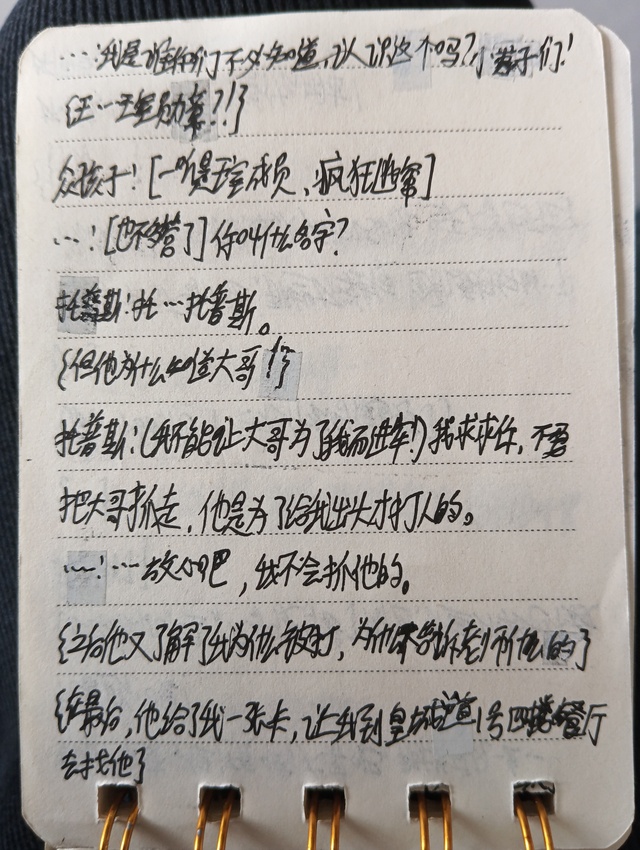 …:我是谁你们不必知道,认识这个吗?小孩子们!
{王…王室勋章?!}
众孩子:[一听是王室成员、疯狂逃窜]
…:[也不管了]你叫什么名字?
托普斯:托…托普斯。
{但他为什么知道大哥!?}
托普斯:(我不能让大哥为了我而进牢!)我求求你,不要
把大哥抓走,他是为了给我出头才打人的。
…:…放心吧,我不会抓他的。
{之后他又了解了我为什么被打,为什么不告诉老师什么的}
{最后,他给了我一张卡,让我到皇城道1号四楼餐厅
去找他}